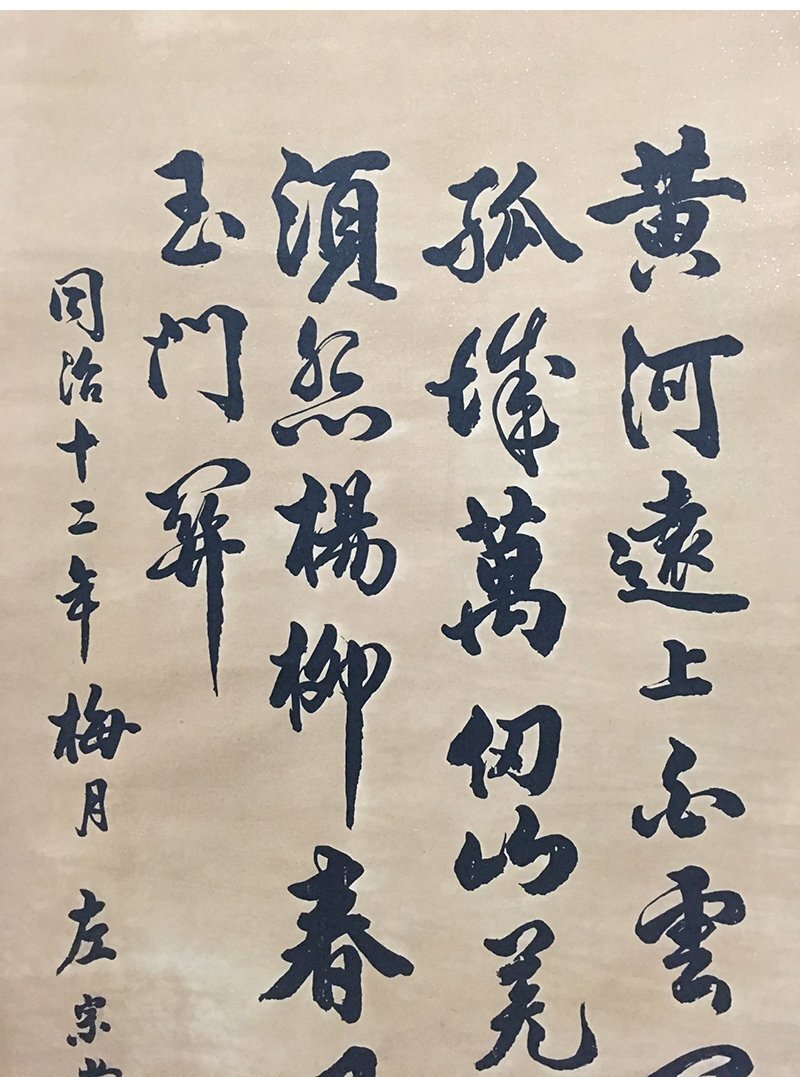 黄河遠上白雲
孤城萬仞山羌
須怨楊柳春
玉門關
同治十二年梅月 左宗